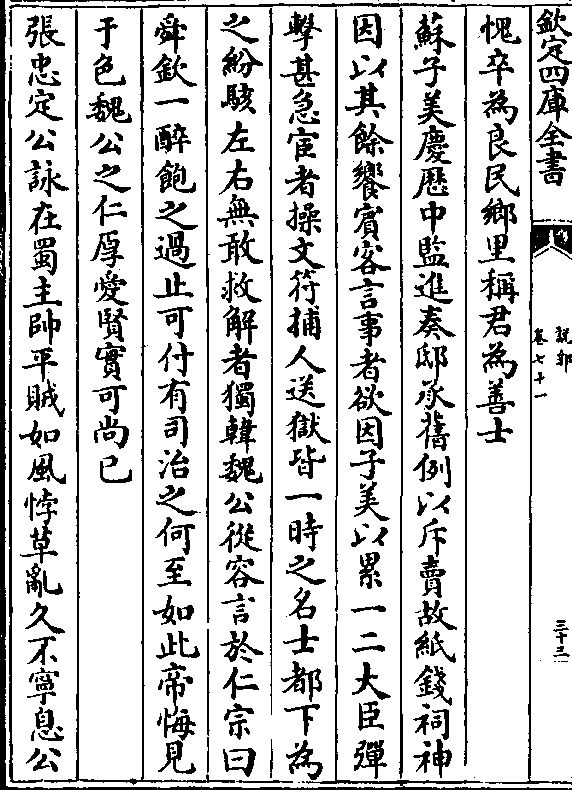 欽定四庫全書
說郛
卷七十一
三十三
愧卒為良民鄉里稱君為善士
蘇子美慶厯中監進奏邸承舊例以斥賣故紙錢祠神
因以其餘饗賓客言事者欲因子美以累一二大臣彈
擊甚急宦者操文符捕人送獄皆一時之名士都下為
之紛駭左右無敢救解者獨韓魏公從容言於仁宗曰
舜欽一醉飽之過止可付有司治之何至如此帝悔見
于色魏公之仁厚愛賢實可尚已
張忠定公詠在蜀主帥平賊如風悖草亂久不寧息公